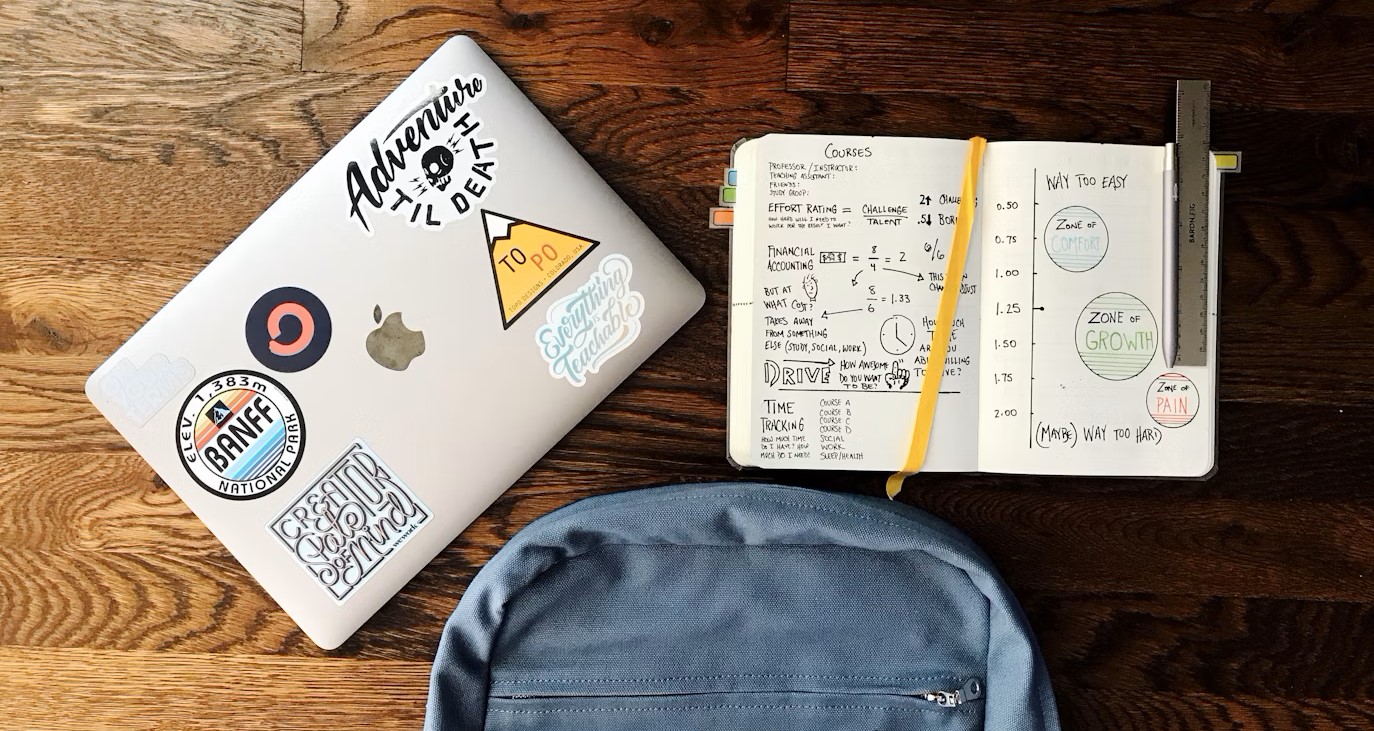 Adventure
TIL DEATH
TO PO
TOPO DESIGNS • COLORADO, USA
Everything
is
Teachable
ELEV. 1,383m
BANFF
NATIONAL PARK
CREATOR
State
OF Mind
wework
COURSES
PROFESSOR / INSTRUCTOR:
TEACHING ASSISTANT:
FRIENDS:
STUDY GROUP:
EFFORT RATING = CHALLENGE
TALENT
HOW HARD WILL I NEED TO
WORK FOR THE RESULT I WANT?
2
.5
FINANCIAL
ACCOUNTING
= 8/4 = 2
6/6
BUT AT
WHAT COST?
8/6 = 1.33
THIS
TAKES AWAY
FROM SOMETHING
ELSE (STUDY, SOCIAL, WORK)
HOW
YOU
DRIVE
HOW AWESOME
DO YOU WANT
TO BE?
TIME
TRACKING
HOW MUCH TIME
DO I HAVE? HOW
MUCH DO I NEED?
COURSE A
COURSE B
COURSE C
COURSE D
SOCIAL
WORK
SLEEP/HEALTH
WAY TOO EASY
0.50
0.75
1.00
1.25
1.50
1.75
2.00
ZONE OF
COMFORT
ZONE OF
GROWTH
ZONE OF
PAIN
(MAYBE) WAY TOO HARD